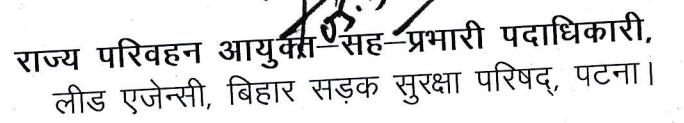 राज्य परिवहन आयुक्त–सह–प्रभारी पदाधिकारी,
लीड एजेन्सी, बिहार सड़क सुरक्षा परिषद्, पटना।